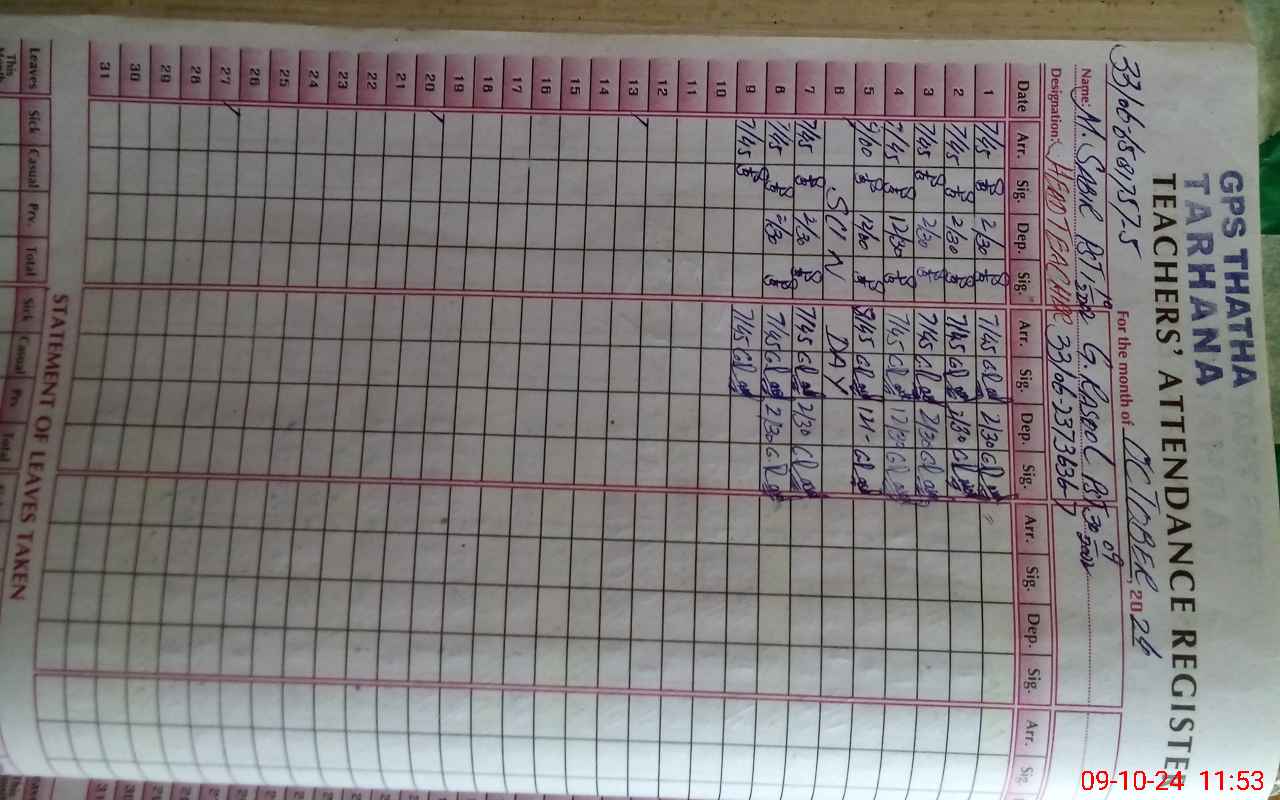 GPS THATHA
TARHANA
TEACHERS' ATTENDANCE REGISTER
For the month of OCTOBER, 2024
Name: M. SABIR PST G. RASOOL PST
Designation: HEAD TEACHER
Date Arr. Sig. Dep. Sig. Arr. Sig. Dep. Sig. Arr. Sig. Dep. Sig. Arr. Sig.
1 7/45 2/30 7/45 2/30
2 7/45 2/30 7/45 2/30
3 7/45 2/30 7/45 2/30
4 7/45 12/30 7/45 12/30
5 12/00 12/-
6 SUN DAY
7 7/45 2/30 7/45 2/30
8 7/45 2/30 7/45 2/30
9 7/45 7/45
10
11
12
13
14
15
16
17
18
19
20
21
22
23
24
25
26
27
28
29
30
31
STATEMENT OF LEAVES TAKEN
Leaves Sick Casual Prv. Total Sick Casual Prv. Total
This
09-10-24 11:53